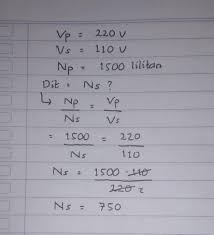 Vp = 220 V
Vs = 110 V
Np = 1500 lilitan
Dit = Ns ?
↳ Np/Ns = Vp/Vs
= 1500/Ns = 220/110
Ns = 1500 · 110/220 2
Ns = 750